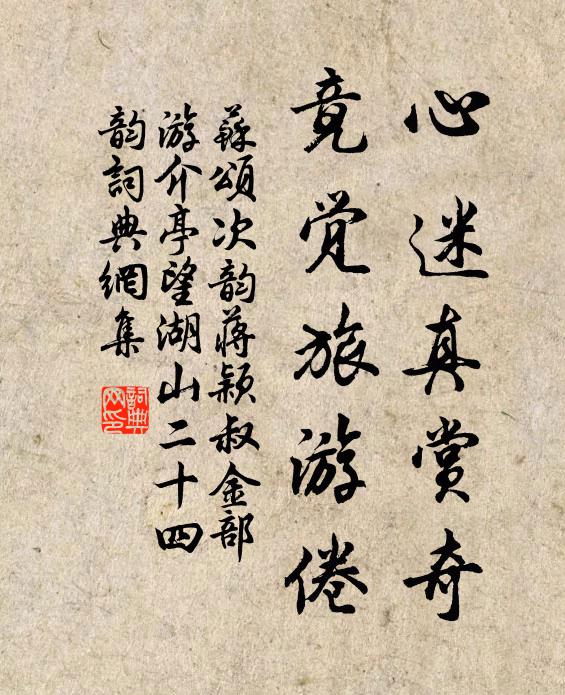 心迷真赏奇
竟觉旅游倦
蘇頌次韵蒋颖叔金部
游介亭望湖山二十四
韵詞典網集
詞典
网印